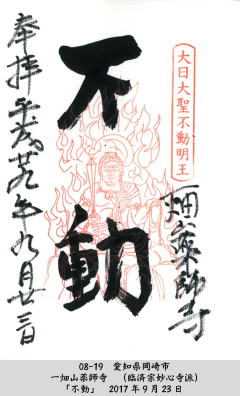 大日大聖不動明王
不動
奉拝 平成廿九年九月廿三日
一畑山薬師寺
08-19　愛知県岡崎市
一畑山薬師寺　（臨済宗妙心寺派）
「不動」　2017年9月23日